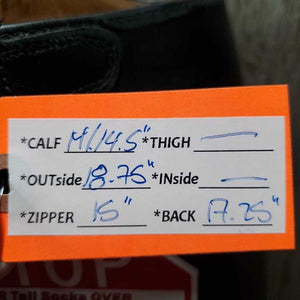 *CALF M/14.5" *THIGH —
*OUTside 18.75" *INside —
*ZIPPER 15" *BACK 17.25"
OP
Tall Socks OVER